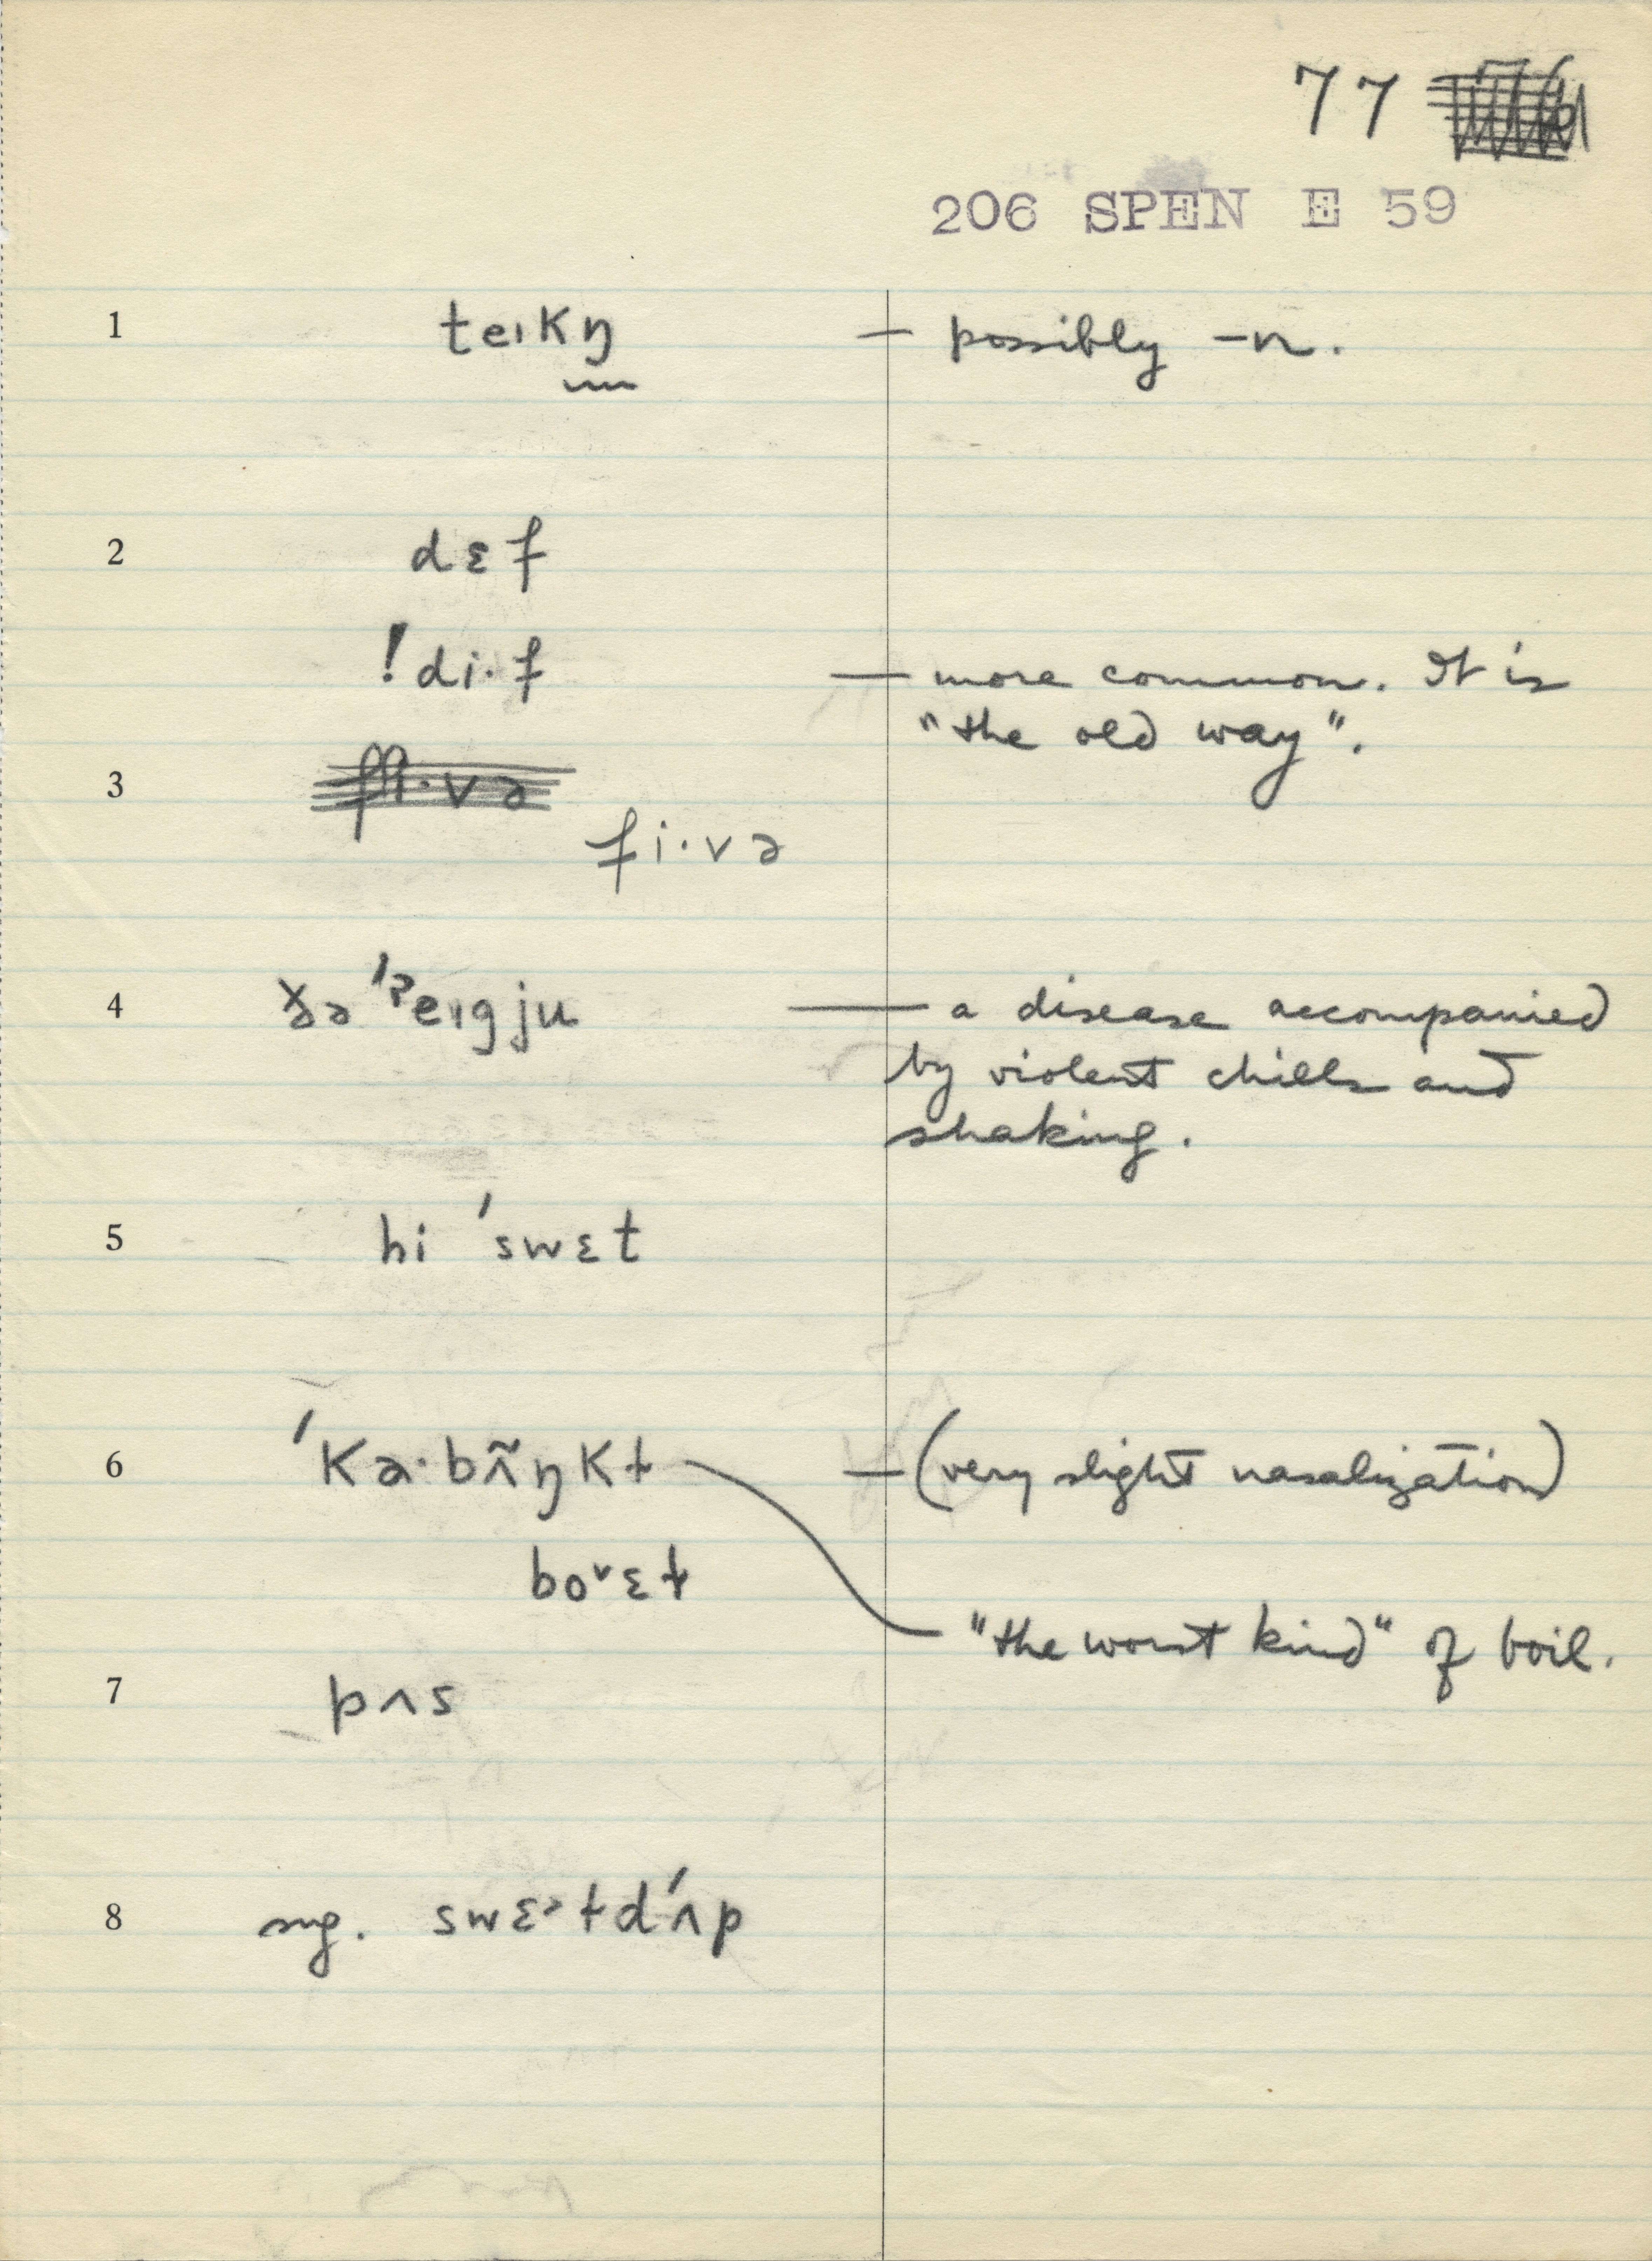 77
206 SPEN E 59
1 teɪkŋ — possibly -n.
2 dɛf
!di·f — more common. It is
"the old way".
3 fi·və
fi·və
4 ðə ˈʔeɪgju — a disease accompanied
by violent chills and
shaking.
5 hi ˈswɛt
6 ˈka·bʌ̃ŋkɫ — (very slight nasalization)
boᵛɛɫ
"the worst kind" of boil.
7 pʌs
8 sng. swɛᵊɫdˈʌp